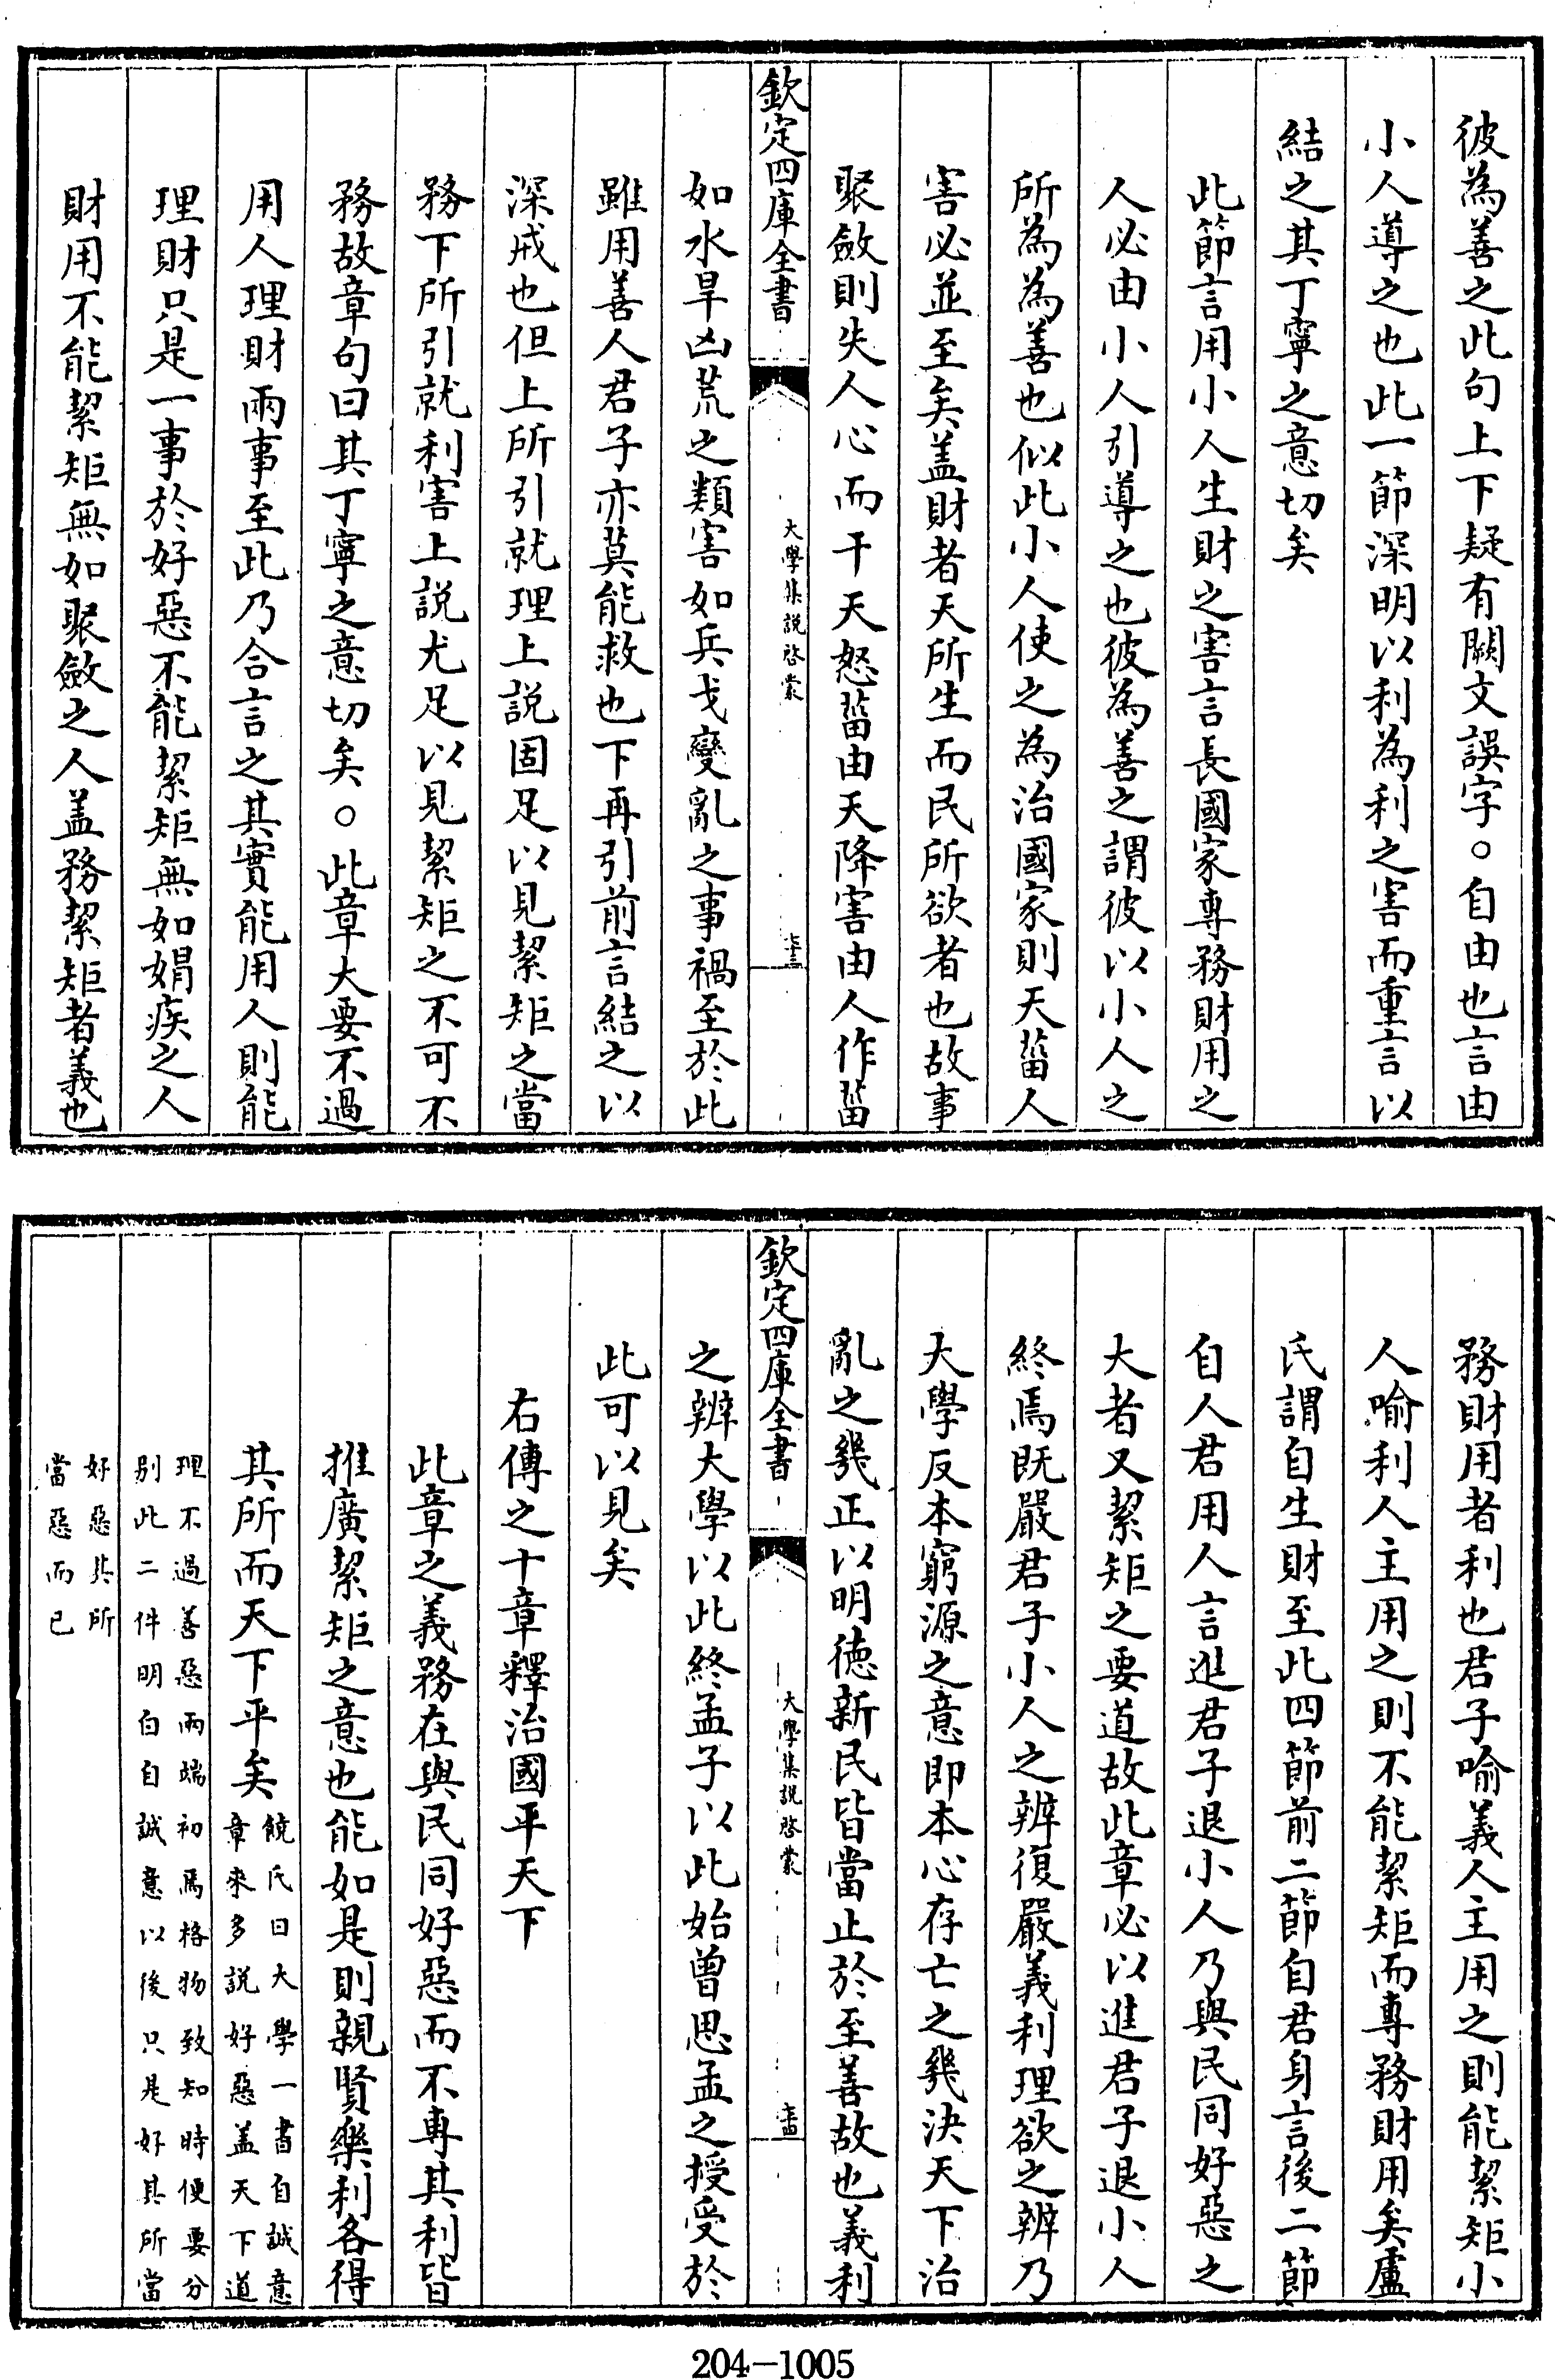 彼為善之此句上下疑有闕文誤字○自由也言由
小人導之也此一節深明以利為利之害而重言以
結之其丁寧之意切矣
此節言用小人生財之害言長國家專務財用之
人必由小人引導之也彼為善之謂彼以小人之
所為為善也似此小人使之為治國家則天菑人
害必並至矣盖財者天所生而民所欲者也故事
聚斂則失人心而干天怒菑由天降害由人作菑
欽定四庫全書
大學集說啓蒙
七十三
如水旱凶荒之類害如兵戈變亂之事禍至於此
雖用善人君子亦莫能救也下再引前言結之以
深戒也但上所引就理上說固足以見絜矩之當
務下所引就利害上說尤足以見絜矩之不可不
務故章句曰其丁寧之意切矣○此章大要不過
用人理財兩事至此乃合言之其實能用人則能
理財只是一事於好惡不能絜矩無如娟疾之人
財用不能絜矩無如聚斂之人盖務絜矩者義也
務財用者利也君子喻義人主用之則能絜矩小
人喻利人主用之則不能絜矩而專務財用矣盧
氏謂自生財至此四節前二節自君身言後二節
自人君用人言進君子退小人乃與民同好惡之
大者又絜矩之要道故此章必以進君子退小人
終焉既嚴君子小人之辨復嚴義利理欲之辨乃
大學反本窮源之意即本心存亡之幾決天下治
亂之幾正以明德新民皆當止於至善故也義利
欽定四庫全書
大學集說啓蒙
七十四
之辨大學以此終孟子以此始曾思孟之授受於
此可以見矣
右傳之十章釋治國平天下
此章之義務在與民同好惡而不專其利皆
推廣絜矩之意也能如是則親賢樂利各得
其所而天下平矣
饒氏曰大學一書自誠意
章來多說好惡盖天下道
理不過善惡兩端初焉格物致知時便要分
别此二件明白自誠意以後只是好其所當
好惡其所
當惡而已
204-1005